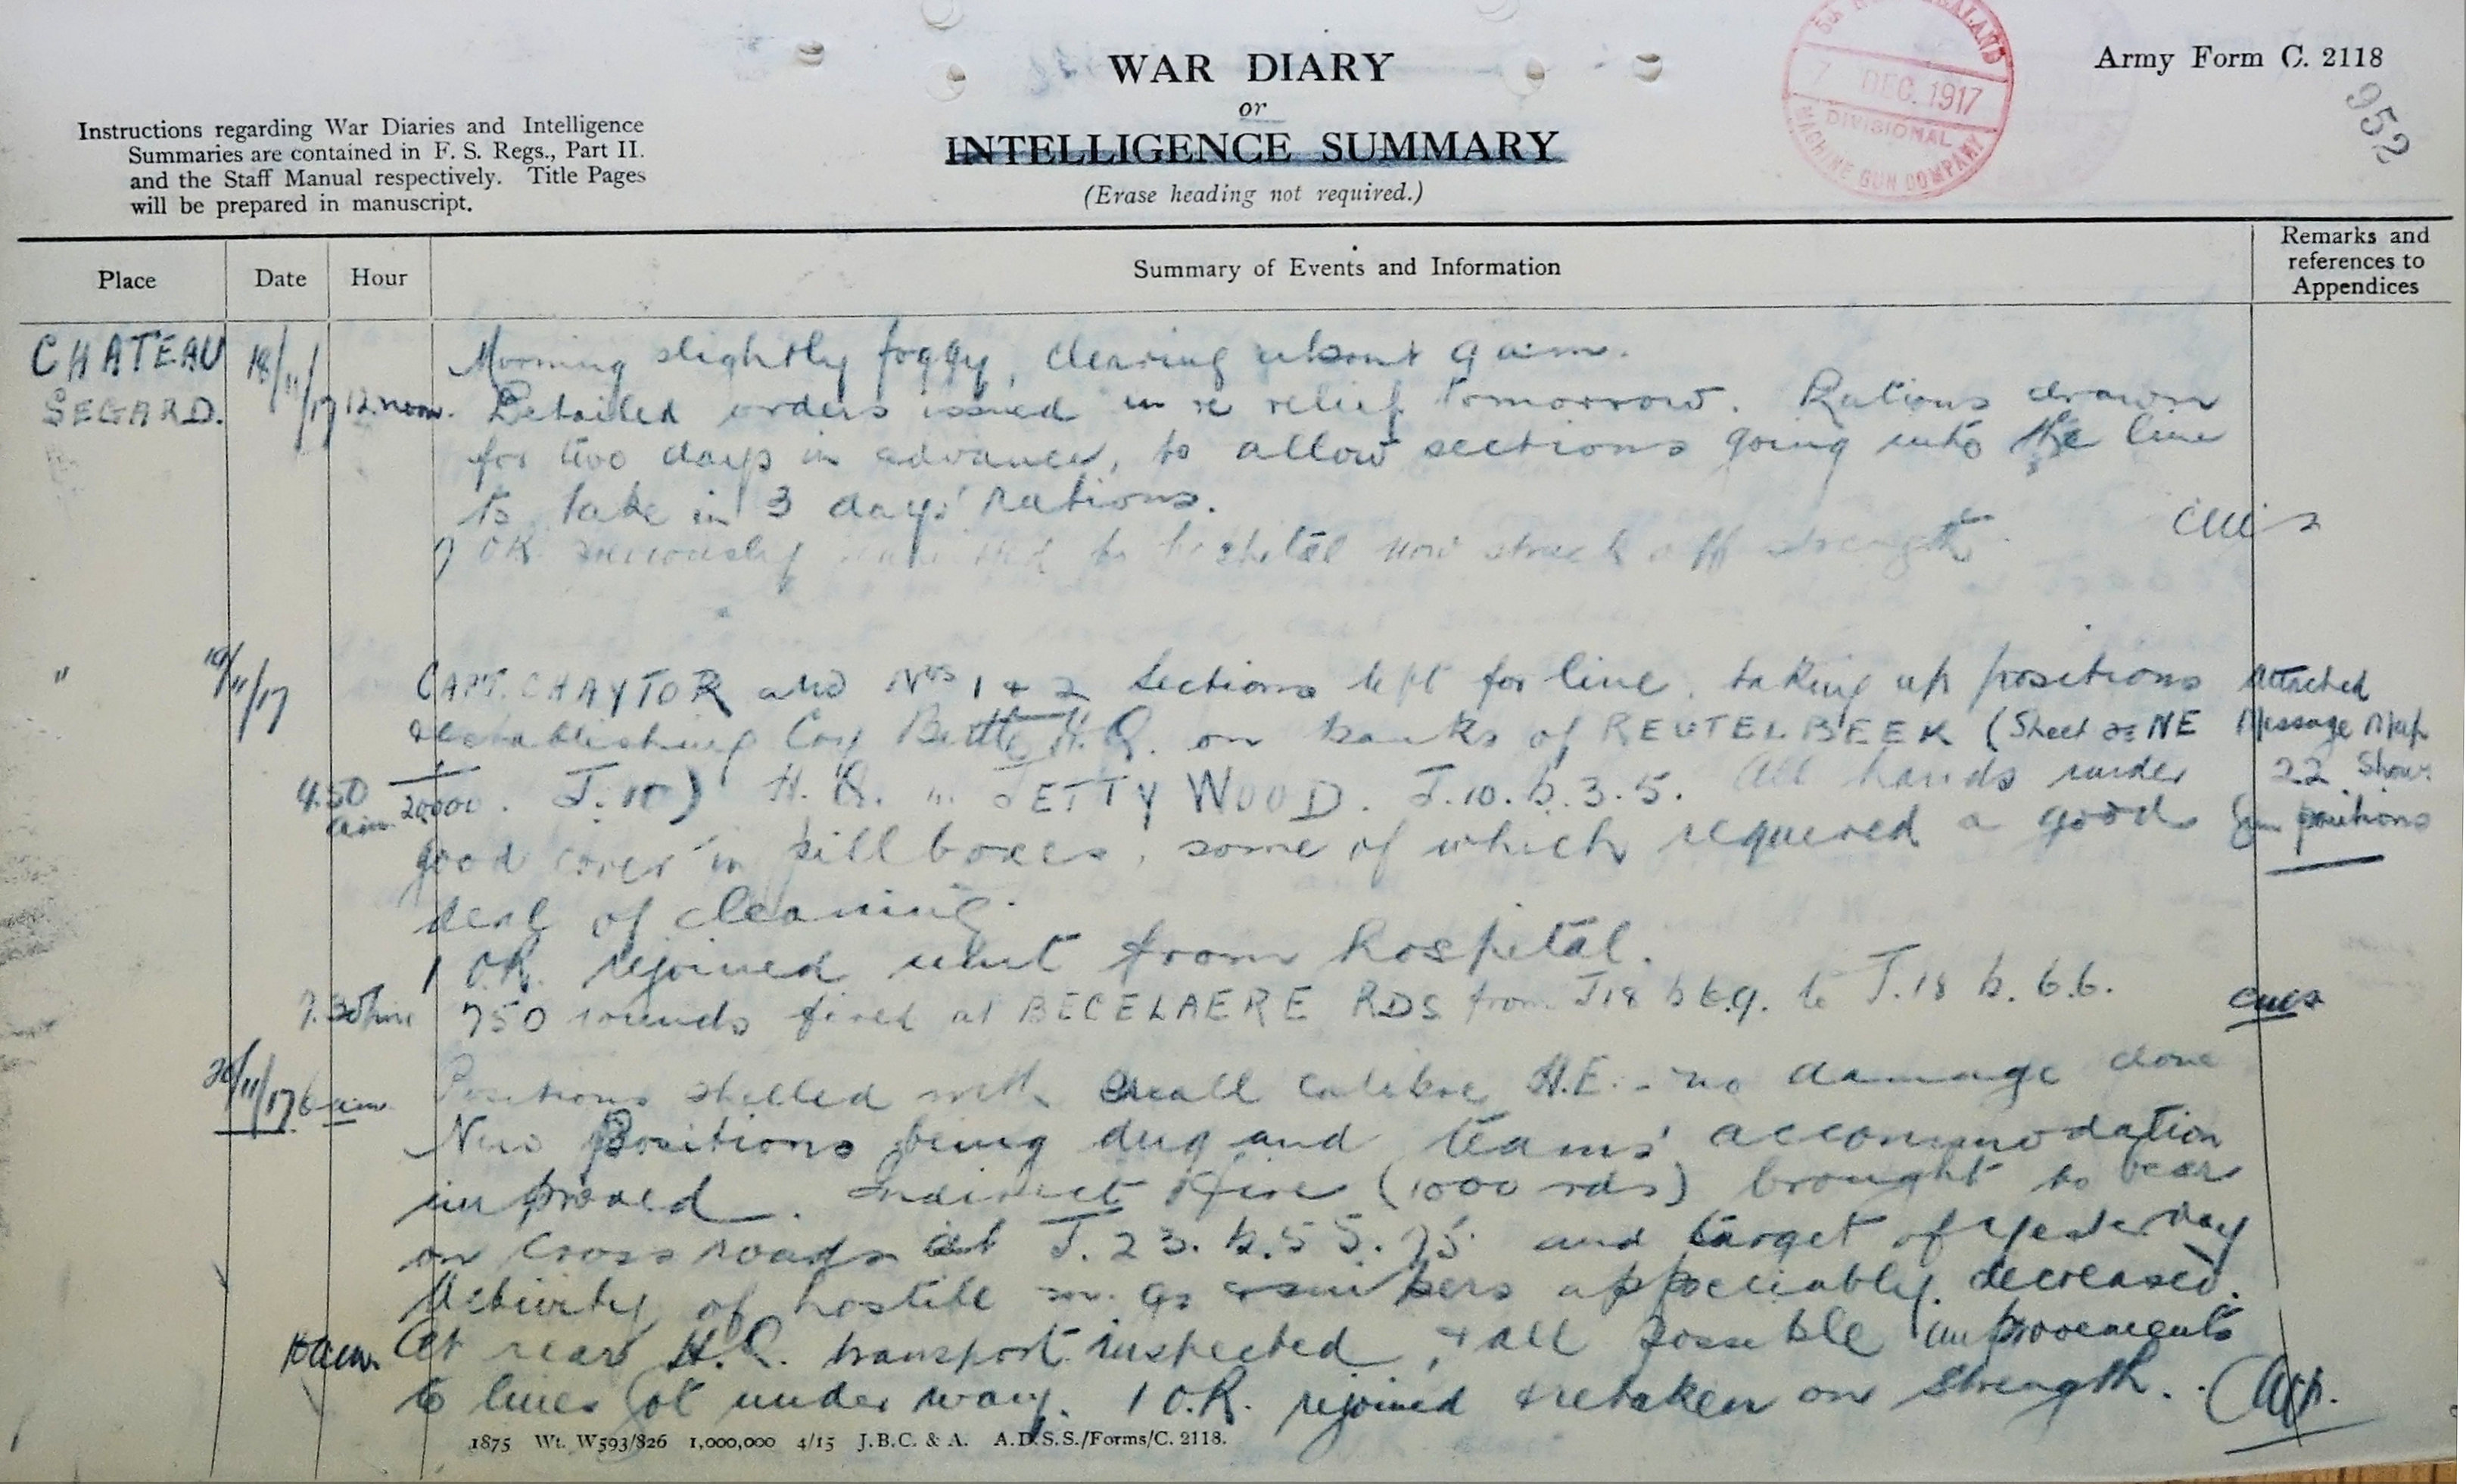 WAR DIARY
or
INTELLIGENCE SUMMARY
(Erase heading not required.)
Army Form C. 2118
952
Instructions regarding War Diaries and Intelligence
Summaries are contained in F. S. Regs., Part II.
and the Staff Manual respectively. Title Pages
will be prepared in manuscript.
7 DEC. 1917
DIVISIONAL
MACHINE GUN COMPANY
Place Date Hour Summary of Events and Information Remarks and references to Appendices
CHATEAU 18/11/17 Morning slightly foggy, clearing about 9 a.m.
SEGARD. 12 noon. Detailed orders issued in re relief tomorrow. Rations drawn
for two days in advance, to allow sections going into the line
to take in 3 days' rations.
O.R. previously to hospital now struck off strength
" 19/11/17 CAPT. CHAYTOR and Nos 1 & 2 Sections left for line, taking up positions Attached
establishing Coy Battle H.Q. on banks of REUTELBEEK (Sheet 28 NE Message Map
4.50 a.m. 1/20000. J. ) H.Q. in JETTY WOOD. J.10.b.3.5. All hands under 22 Shows
good cover in pill boxes, some of which requered a good Gun positions
deal of cleaning.
1 O.R. rejoined unit from hospital.
7.30 pm 750 rounds fired at BECELAERE RDS from J18 b 6.9. to J.18 b. 6.6.
20/11/17 6 am Positions shelled with small calibre H.E. - no damage done
New Positions being dug and teams' accommodation
improved. Indirect fire (1000 rds) brought to bear
on Cross roads at J.23.b.55.75 and target of yesterday
Activity of hostile m.gs & snipers appreciably decreased.
10 am. At rear H.Q. transport inspected, & all possible improvements
to lines got under way. 1 O.R. rejoined & retaken on strength.
1875 Wt. W593/826 1,000,000 4/15 J.B.C. & A. A.D.S.S./Forms/C. 2118.